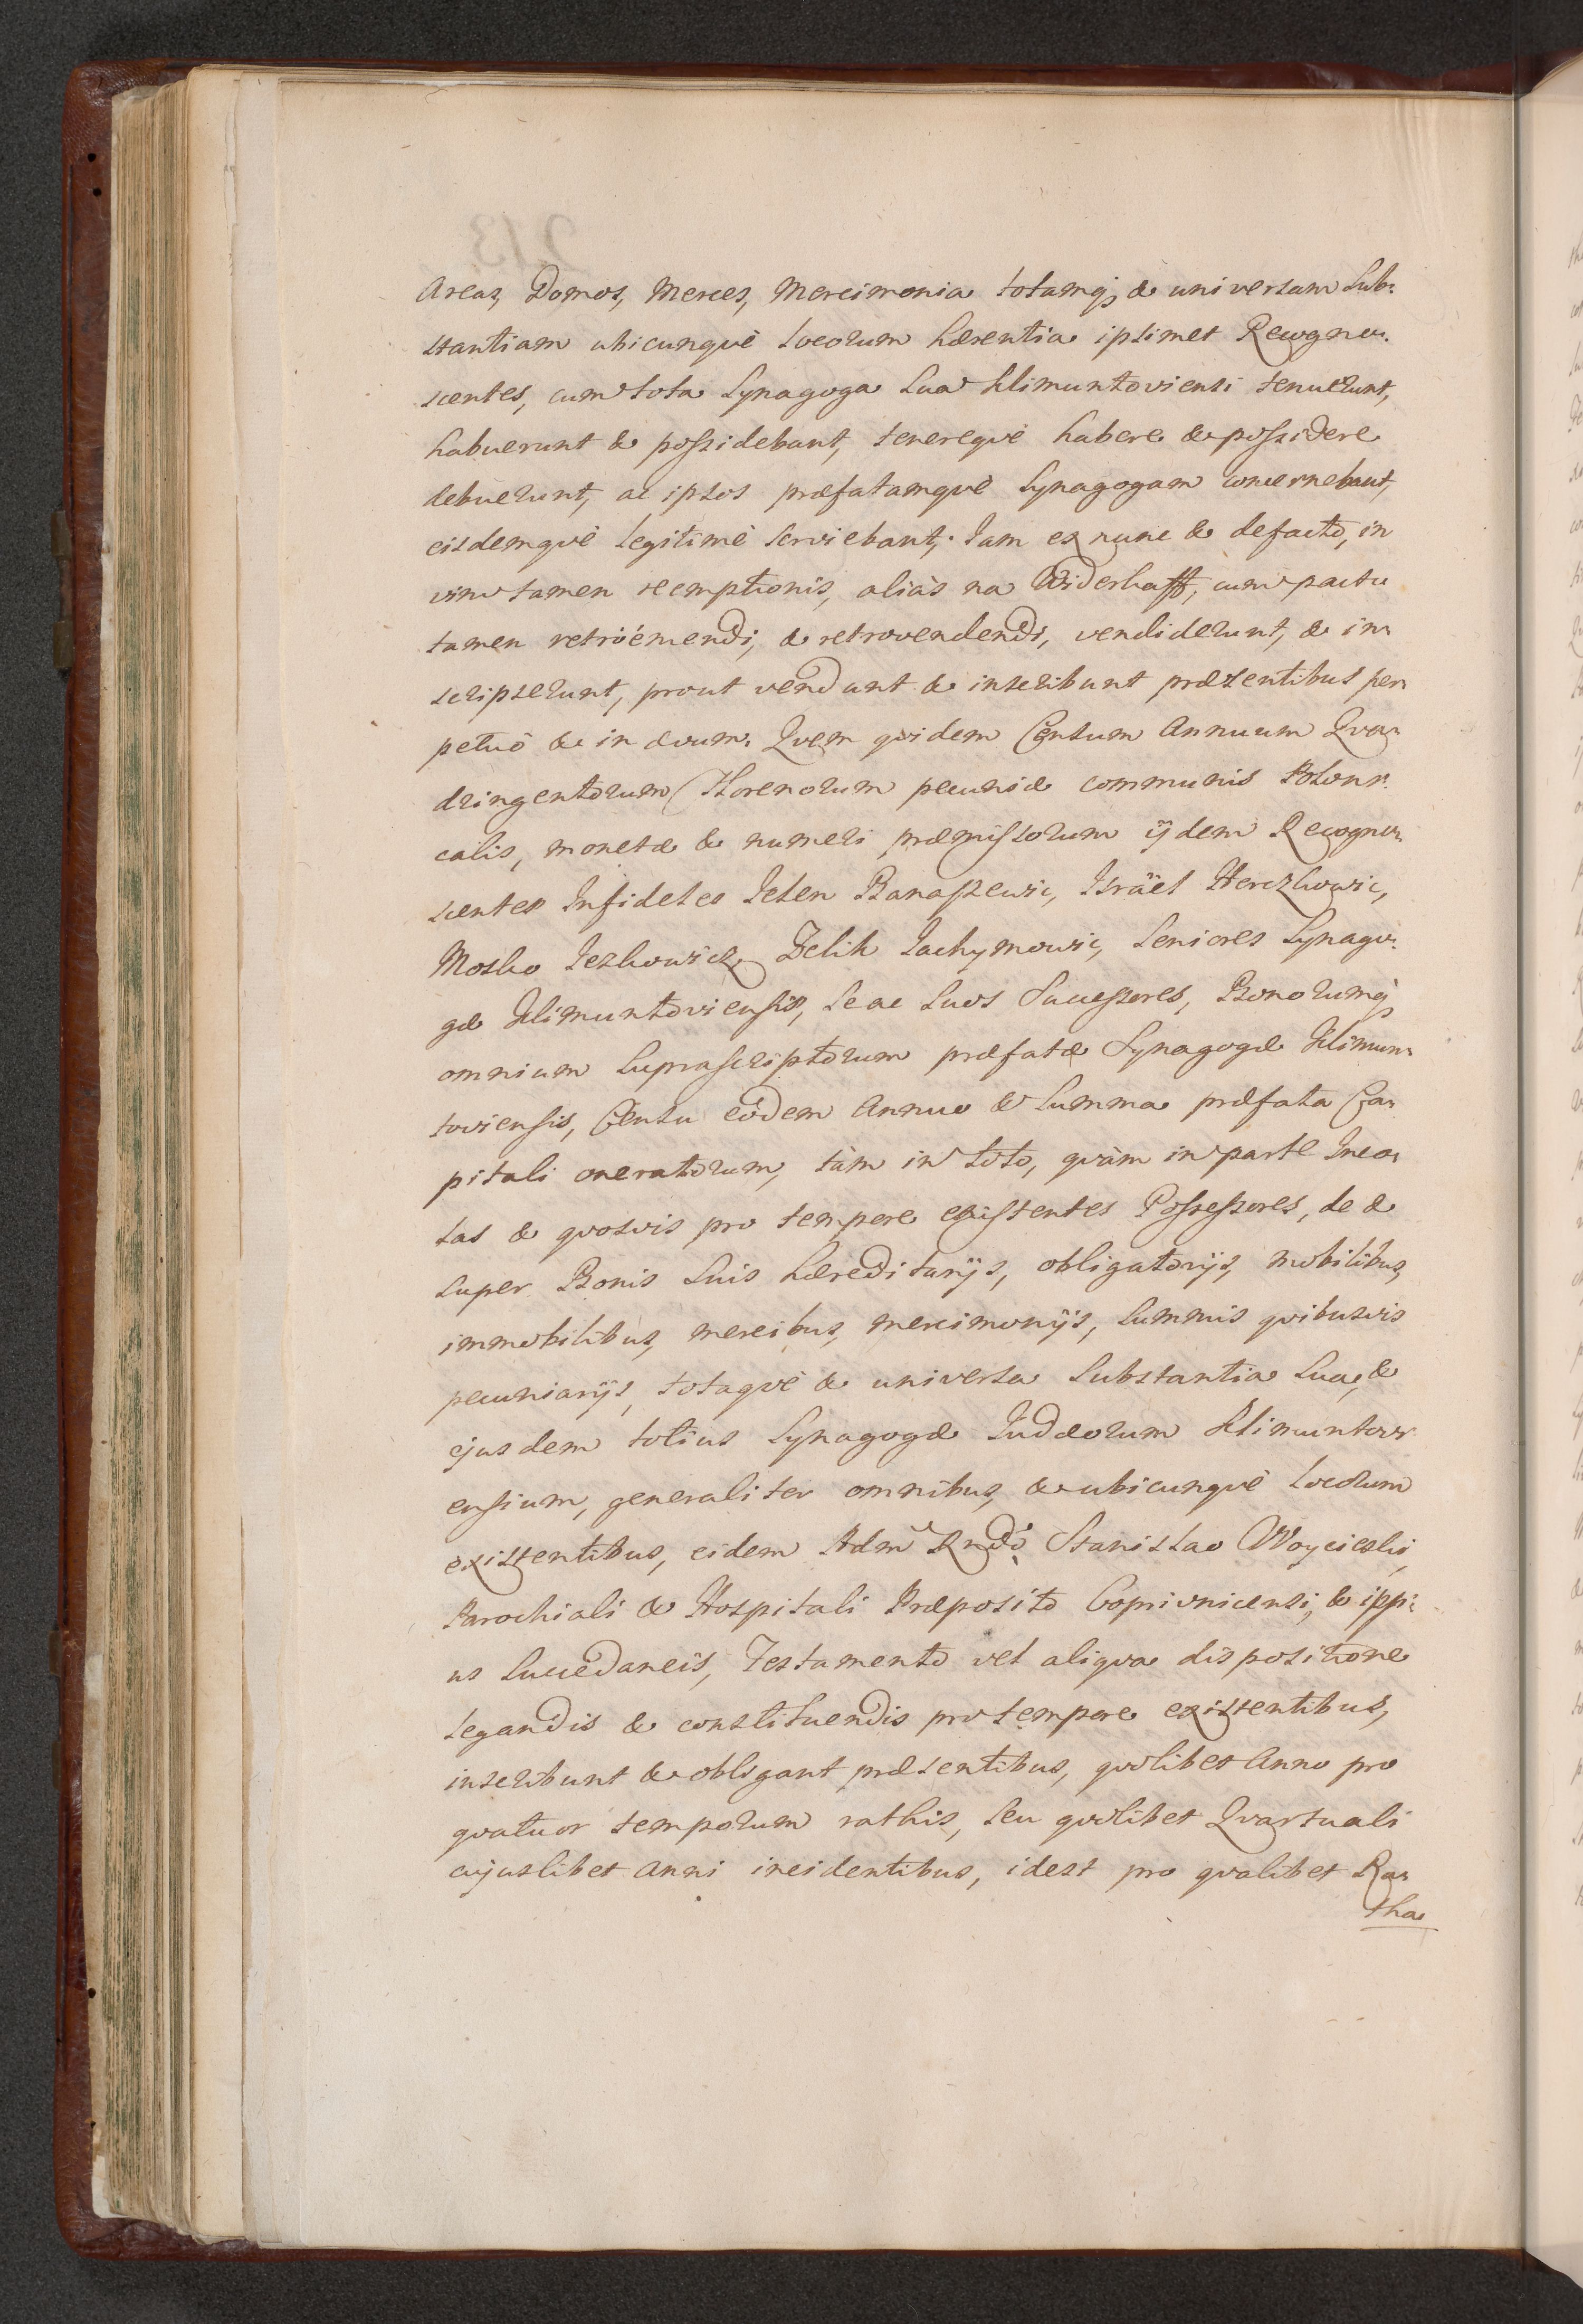 Areas, Domos, Merces, Mercimonia totamq3 & universam Sub-
stantiam ubicunqvè locorum hærentia ipsimet Recogno-
scentes, cum tota Synagoga Sua Klimuntoviensi tenuerunt,
habuerunt & possidebant, tenereqvè habere & possidere
debuerunt, ac ipsos præfatamqvè Synagogam concernebant,
eisdemqvè legitimè serviebant, Iam ex nunc & defacto, in
vim tamen reemptionis, aliàs na Widerkaff, cum pacto
tamen retròemendi, & retrovendendi, vendiderunt, & in-
scripserunt, prout vendunt & inscribunt præsentibus per-
petuò & in ævum. Qvem qvidem Censum Annuum Qva-
dringentorum Florenorum pecuniæ communis Poloni-
calis, monetæ & numeri præmissorum ijdem Recogno-
scentes Infideles Ielen Banaszewic, Isräel Herczkowic,
Mosko Ieskowicz, Zelik Iachymowic, Seniores Synago-
gæ Klimuntoviensis, Se ac Suos Successores, Bonorumq3
omnium Suprascriptorum præfatæ Synagogæ Klimun-
toviensis, Censu eódem Annuo & Summa præfata Ca-
pitali oneratorum, tàm in toto, qvàm in parte Inco-
las & qvosvis pro tempore existentes Possessores, de &
super Bonis Suis hæreditarijs, obligatorijs, mobilibus,
immobilibus, mercibus, mercimonijs, Summis qvibusvis
pecuniarijs, totaqvè & universa Substantia Sua, &
ejusdem totius Synagogæ Iudæorum Klimuntovi-
ensium, generaliter omnibus, & ubicunqvè locorum
existentibus, eidem Adm Rndo Stanislao Woycieski,
Parochiali & Hospitali Præposito Coprivnicensi, & ipsi-
us Succedaneis, Testamento vel aliqva dispositione
legandis & constituendis pro tempore existentibus,
inscribunt & obligant præsentibus, qvolibet Anno pro
qvatuor temporum rathis, seu qvolibet Qvartuali
cujuslibet Anni incidentibus, idest pro qvalibet Ra-
tha